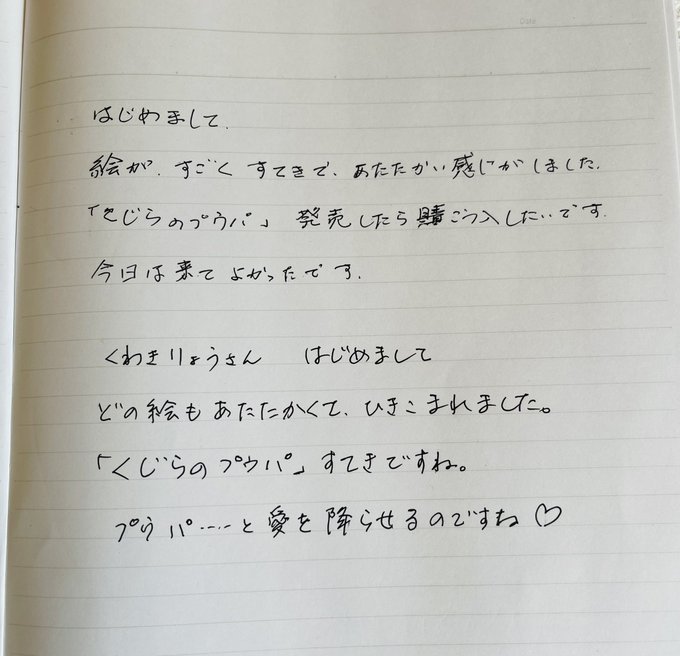 はじめまして.
絵が、すごく すてきで、あたたかい感じがしました.
「くじらのプウパ」 発売したら こう入したいです.
今日は来て よかったです.
くわきりょうさん はじめまして
どの絵も あたたかくて、ひきこまれました。
「くじらのプウパ」すてきですね。
プウパ……と愛を降らせるのですね♡
Date